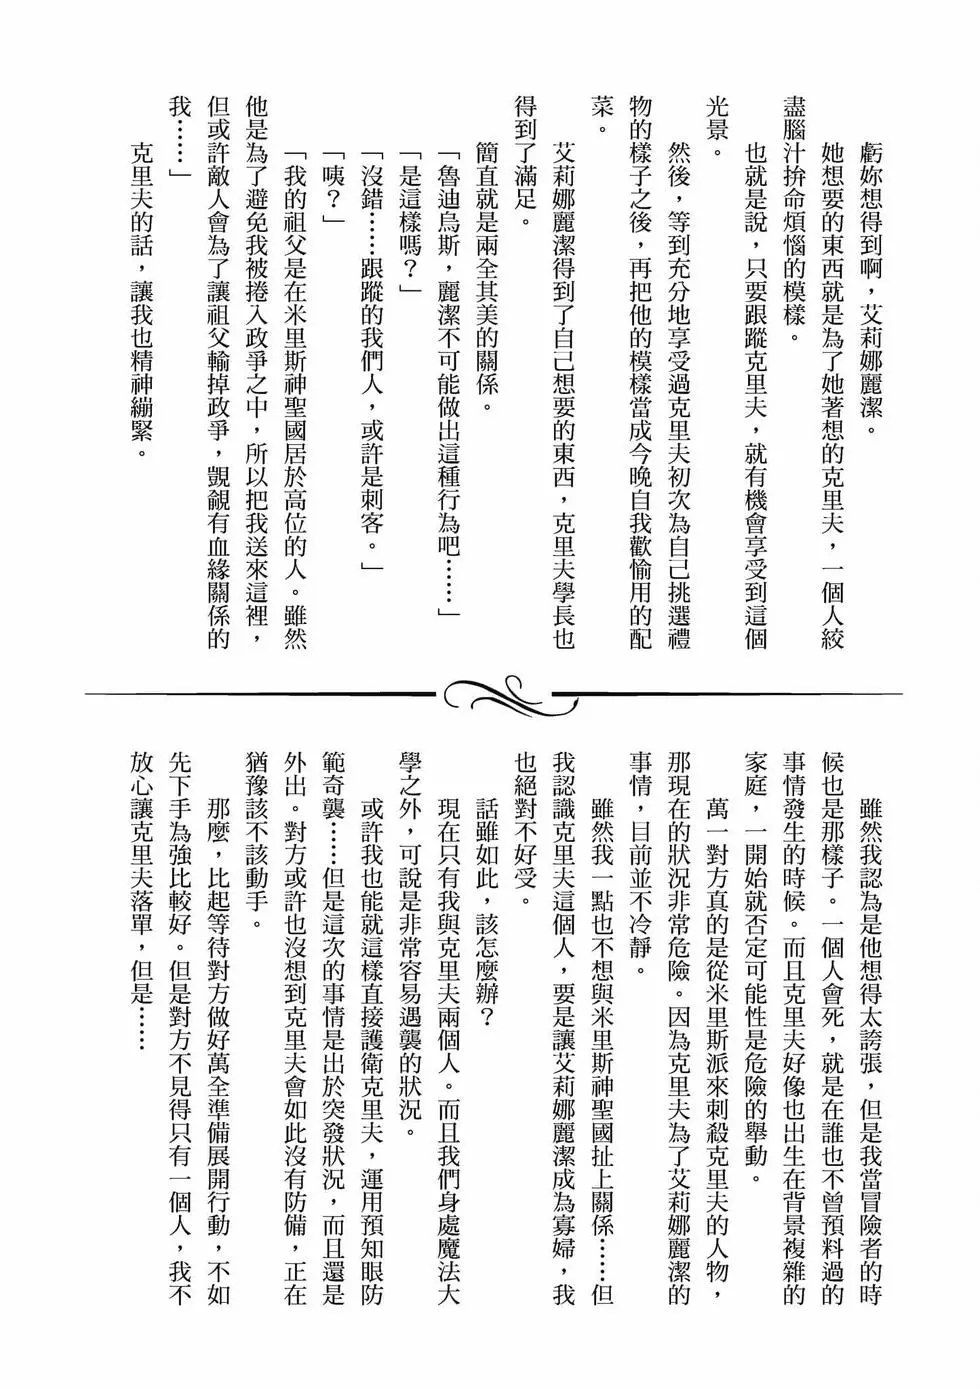 虧妳想得到啊，艾莉娜麗潔。
她想要的東西就是為了她著想的克里夫，一個人絞
盡腦汁拚命煩惱的模樣。
也就是說，只要跟蹤克里夫，就有機會享受到這個
光景。
然後，等到充分地享受過克里夫初次為自己挑選禮
物的樣子之後，再把他的模樣當成今晚自我歡愉用的配
菜。
艾莉娜麗潔得到了自己想要的東西，克里夫學長也
得到了滿足。
簡直就是兩全其美的關係。
「魯迪烏斯，麗潔不可能做出這種行為吧……」
「是這樣嗎？」
「沒錯……跟蹤的我們人，或許是刺客。」
「咦？」
「我的祖父是在米里斯神聖國居於高位的人。雖然
他是為了避免我被捲入政爭之中，所以把我送來這裡，
但或許敵人會為了讓祖父輸掉政爭，覬覦有血緣關係的
我……」
克里夫的話，讓我也精神繃緊。
雖然我認為是他想得太誇張，但是我當冒險者的時
候也是那樣子。一個人會死，就是在誰也不曾預料過的
事情發生的時候。而且克里夫好像也出生在背景複雜的
家庭，一開始就否定可能性是危險的舉動。
萬一對方真的是從米里斯派來刺殺克里夫的人物，
那現在的狀況非常危險。因為克里夫為了艾莉娜麗潔的
事情，目前並不冷靜。
雖然我一點也不想與米里斯神聖國扯上關係……但
我認識克里夫這個人，要是讓艾莉娜麗潔成為寡婦，我
也絕對不好受。
話雖如此，該怎麼辦？
現在只有我與克里夫兩個人。而且我們身處魔法大
學之外，可說是非常容易遇襲的狀況。
或許我也能就這樣直接護衛克里夫，運用預知眼防
範奇襲……但是這次的事情是出於突發狀況，而且還是
外出。對方或許也沒想到克里夫會如此沒有防備，正在
猶豫該不該動手。
那麼，比起等待對方做好萬全準備展開行動，不如
先下手為強比較好。但是對方不見得只有一個人，我不
放心讓克里夫落單，但是……